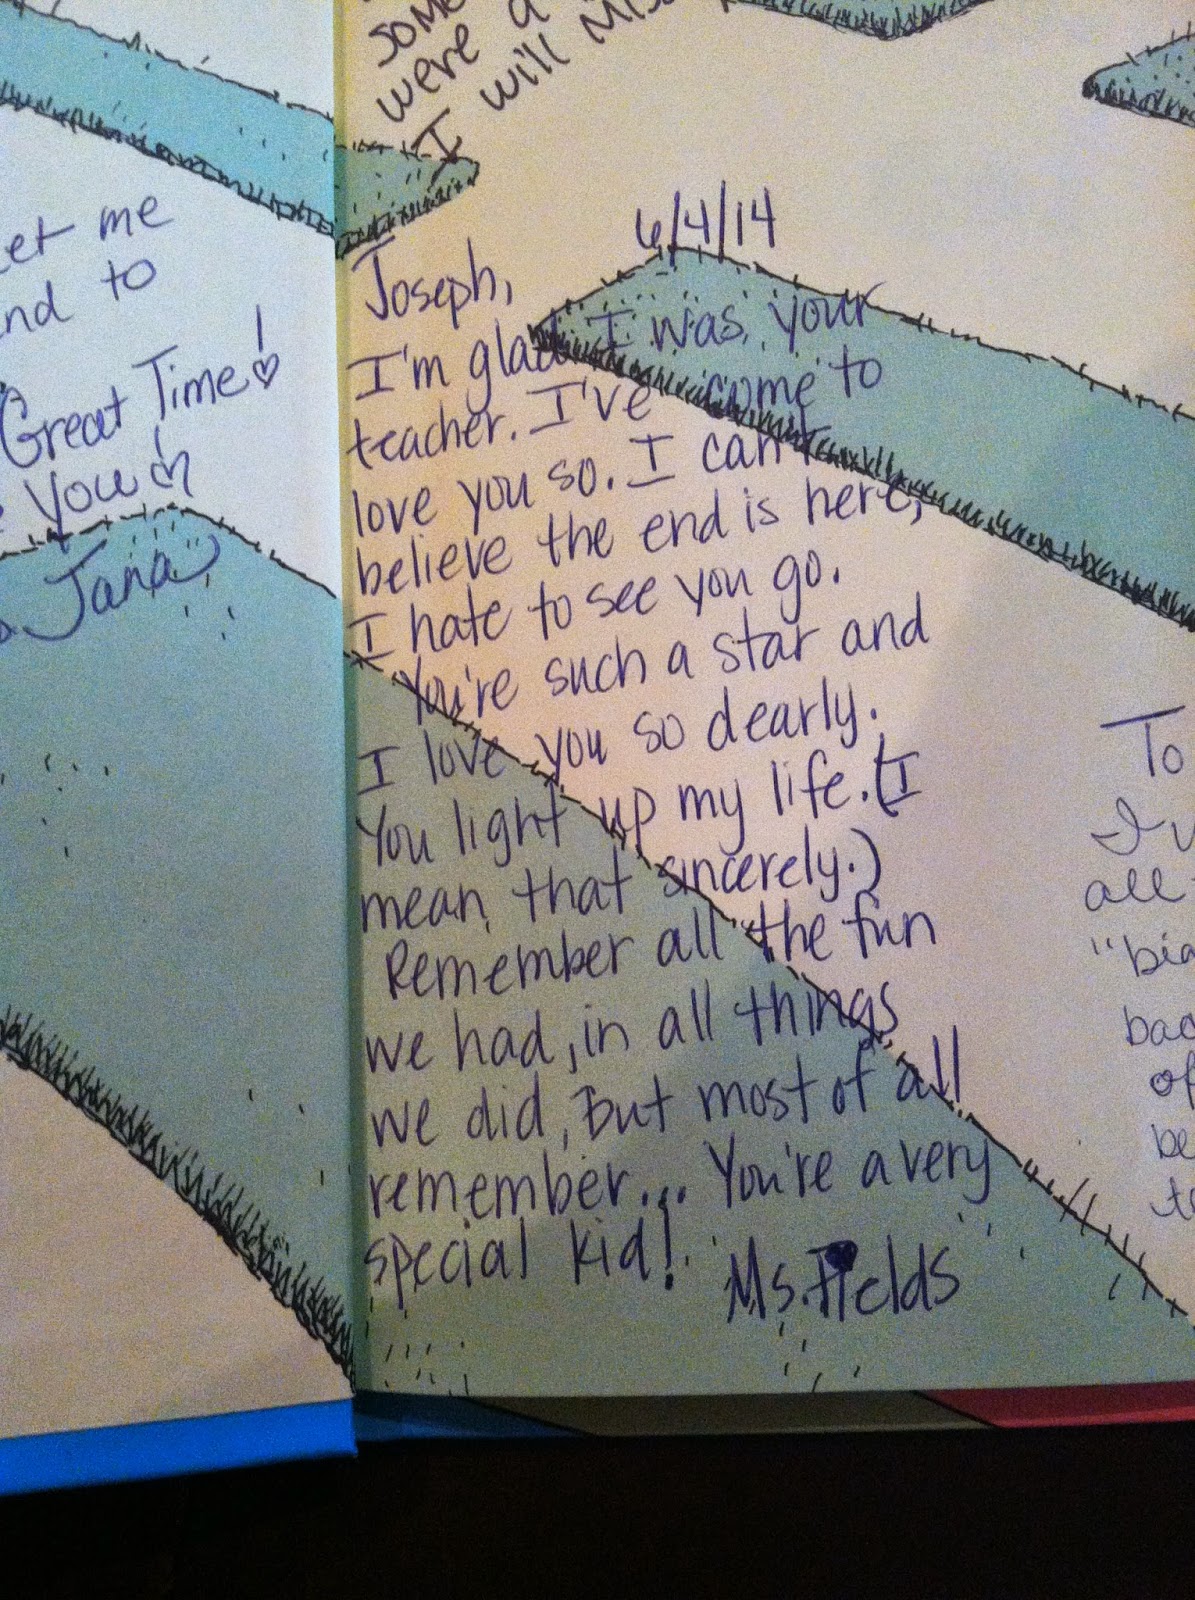 were a
I will
et me
nd to
Great Time!
you
Jana
6/4/14
Joseph,
I'm glad I was your
teacher. I've come to
love you so. I can't
believe the end is here,
I hate to see you go.
You're such a star and
I love you so dearly.
You light up my life. (I
mean that sincerely.)
Remember all the fun
we had, in all things
we did, but most of all
remember... You're a very
special kid!
Ms. Fields
To
all